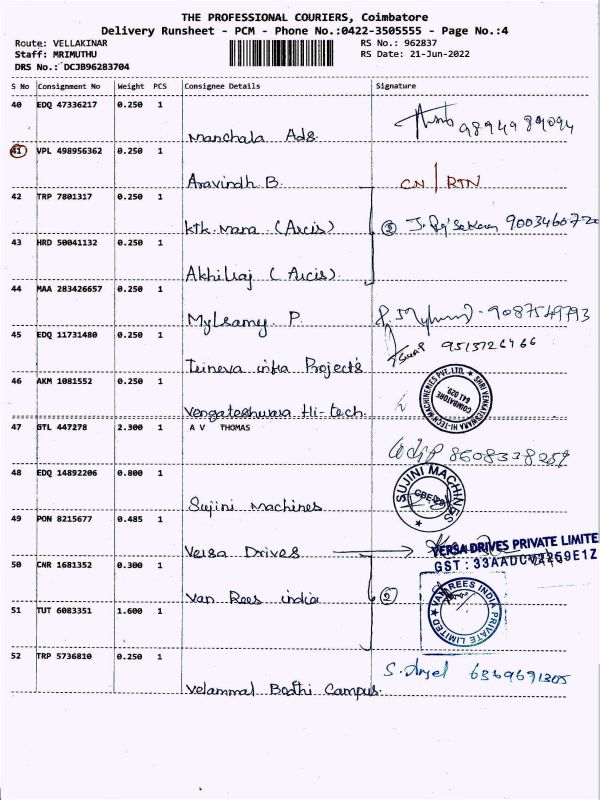 THE PROFESSIONAL COURIERS, Coimbatore
Delivery Runsheet - PCM - Phone No.:0422-3505555 - Page No.:4
Route: VELLAKINAR RS No.: 962837
Staff: MRIMUTHU RS Date: 21-Jun-2022
DRS No.: DCJB96283704
S No Consignment No Weight PCS Consignee Details Signature
40 EDQ 47336217 0.250 1
Manchala Ads. 9894989094
41 VPL 498956362 0.250 1
Aravindh B. CN/RTN
42 TRP 7801317 0.250 1
ktk. Mara (Arcis) 3
43 HRD 50041132 0.250 1
Akhilraj (Arcis)
44 MAA 283426657 0.250 1
Mylsamy P. 9087549793
45 EDQ 11731480 0.250 1
infra Projects
46 AKM 1081552 0.250 1
SHRI VENKATESHWARA HI-TECH MACHINERIES PVT. LTD. COIMBATORE 641 029.
Vengateshwara Hi-tech.
47 GTL 447278 2.300 1 A V THOMAS
8608338259
48 EDQ 14892206 0.800 1
SUJINI MACHINES
Sujini Machines
49 PON 8215677 0.485 1
Versa Drives VERSA DRIVES PRIVATE LIMITE
50 CNR 1681352 0.300 1
Van Rees india 2
VAN REES INDIA PRIVATE LIMITED
51 TUT 6083351 1.600 1
52 TRP 5736810 0.250 1
6369691305
Velammal Bodhi Campus.